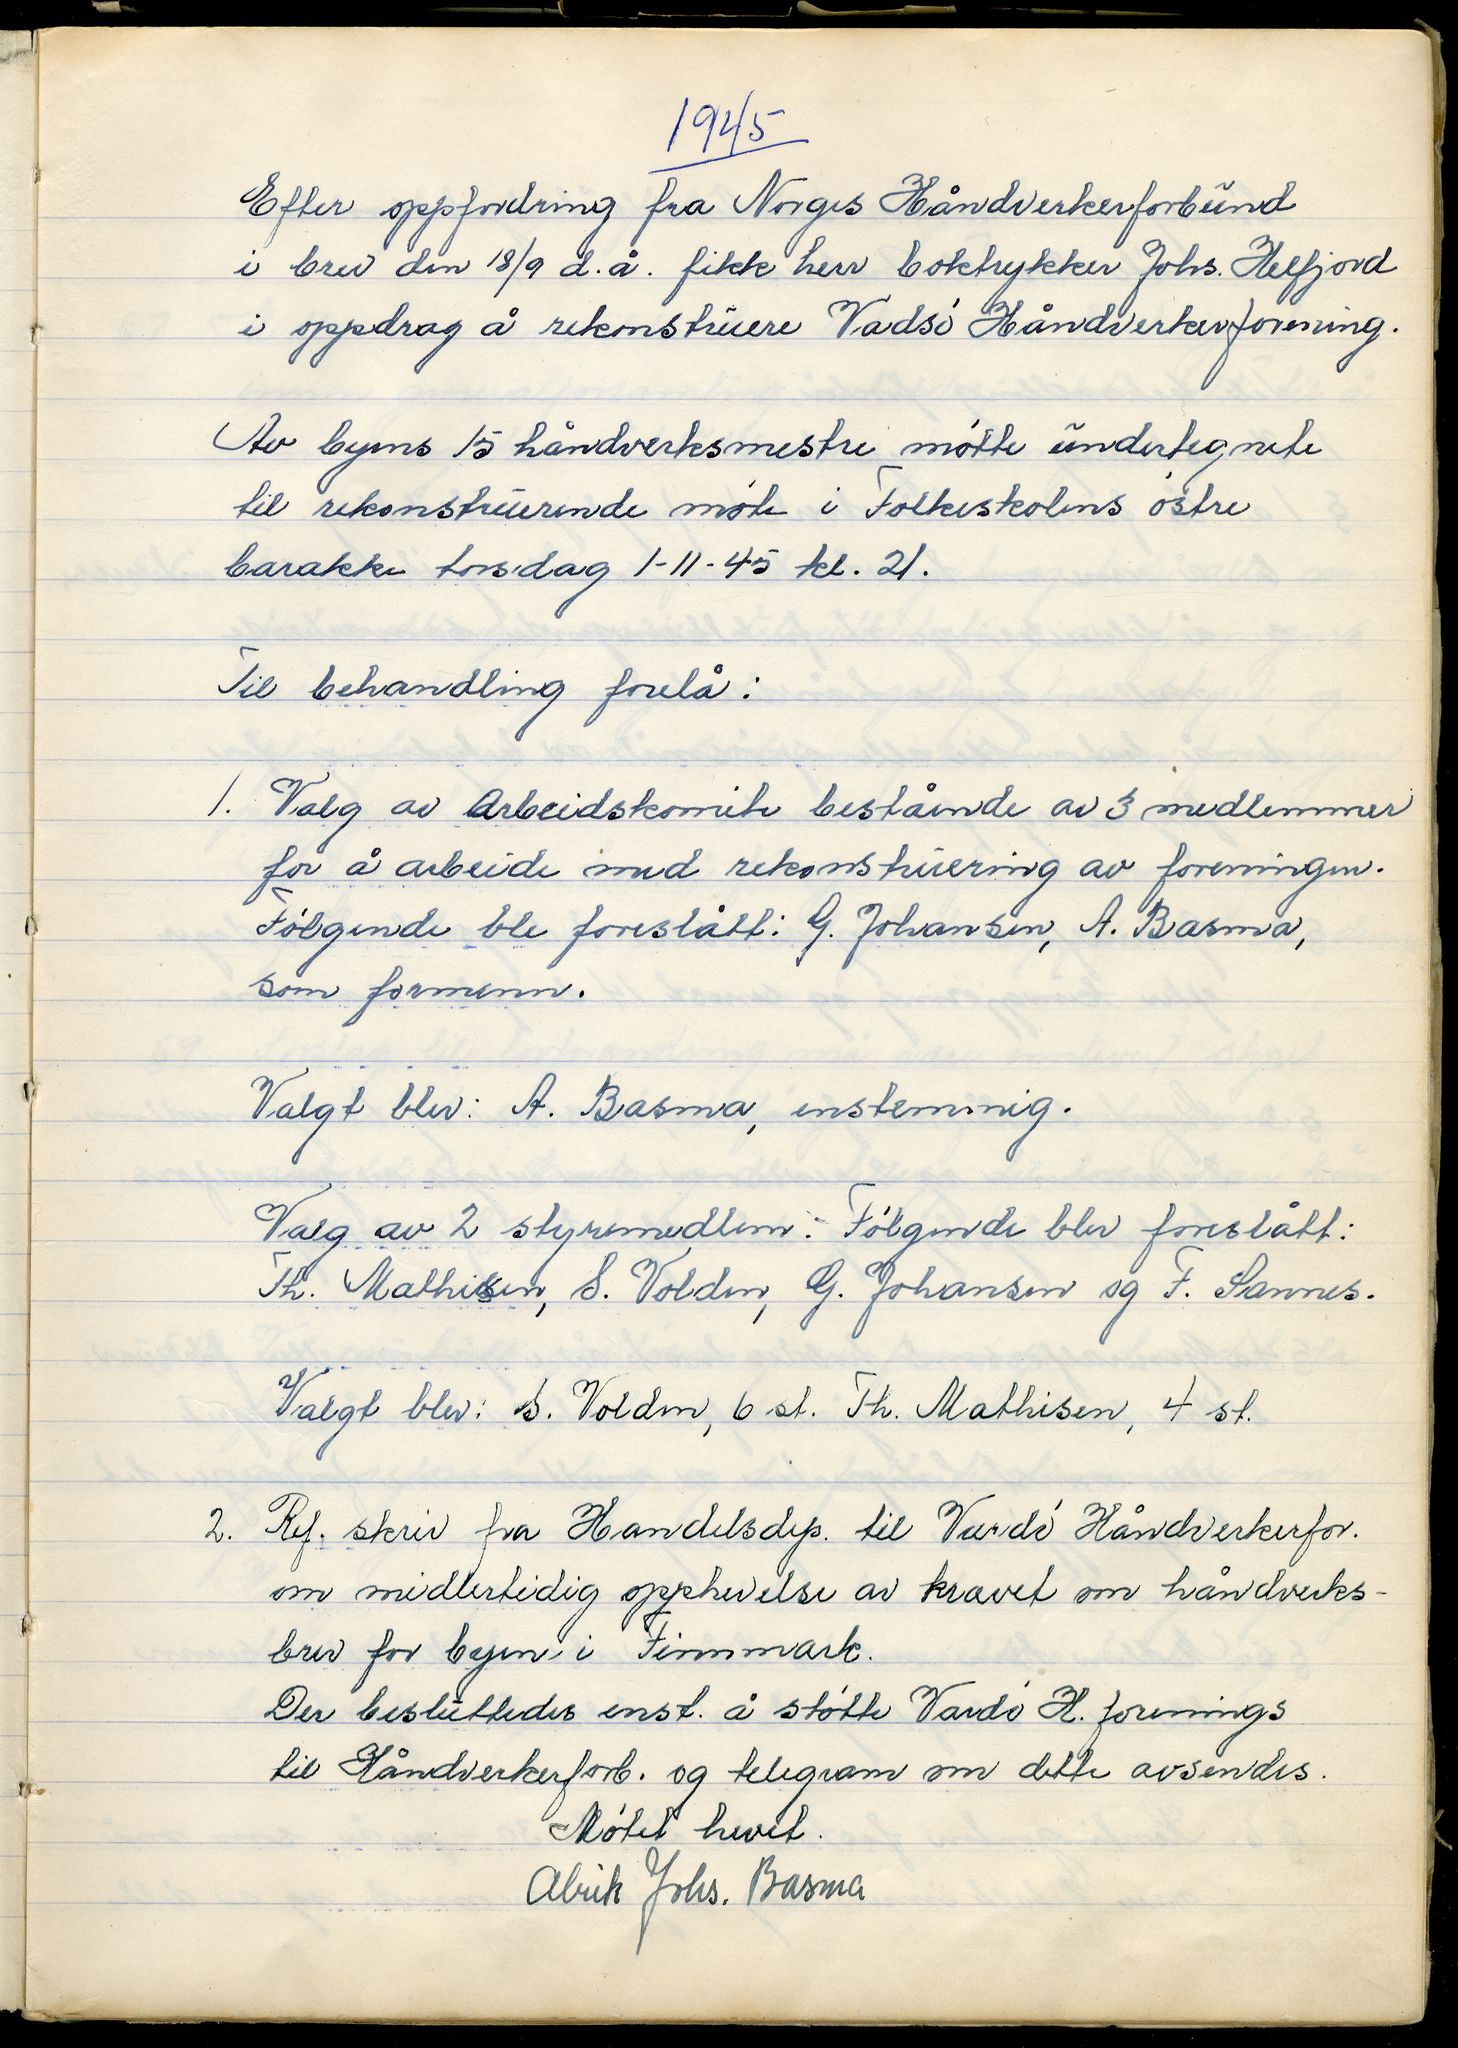 1945
Efter oppfordring fra Norges Håndverkerforbund
i brev den 18/9 d.å. fikk herr boktrykker Johs. Helfjord
i oppdrag å rekonstruere Vadsö Håndverkerforening.
Av byens 15 håndverksmestre møtte undertegnete
til rekonstruerende møte i Folkeskolens östre
barakke torsdag 1-11-45 kl. 21.
Til behandling forelå:
1. Valg av Arbeidskomite bestående av 3 medlemmer
for å arbeide med rekonstruering av foreningen.
Følgende ble foreslått: G. Johansen, A. Basma,
som formenn.
Valgt blev: A. Basma, enstemmig.
Valg av 2 styremedlem: Følgende blev foreslått:
Th. Mathisen, S. Volden, G. Johansen og F. Sannes.
Valgt blev: S. Volden, 6 st. Th. Mathisen, 4 st.
2. Ref. skriv fra Handelsdep. til Vardö Håndverkerfor.
om midlertidig opphevelse av kravet om håndverks-
brev for byen i Finnmark.
Der besluttedes enst. å støtte Vardö H. forenings
til Håndverkerforb. og telegram om dette avsendes.
Møtet hevet.
Alrik Johs. Basma